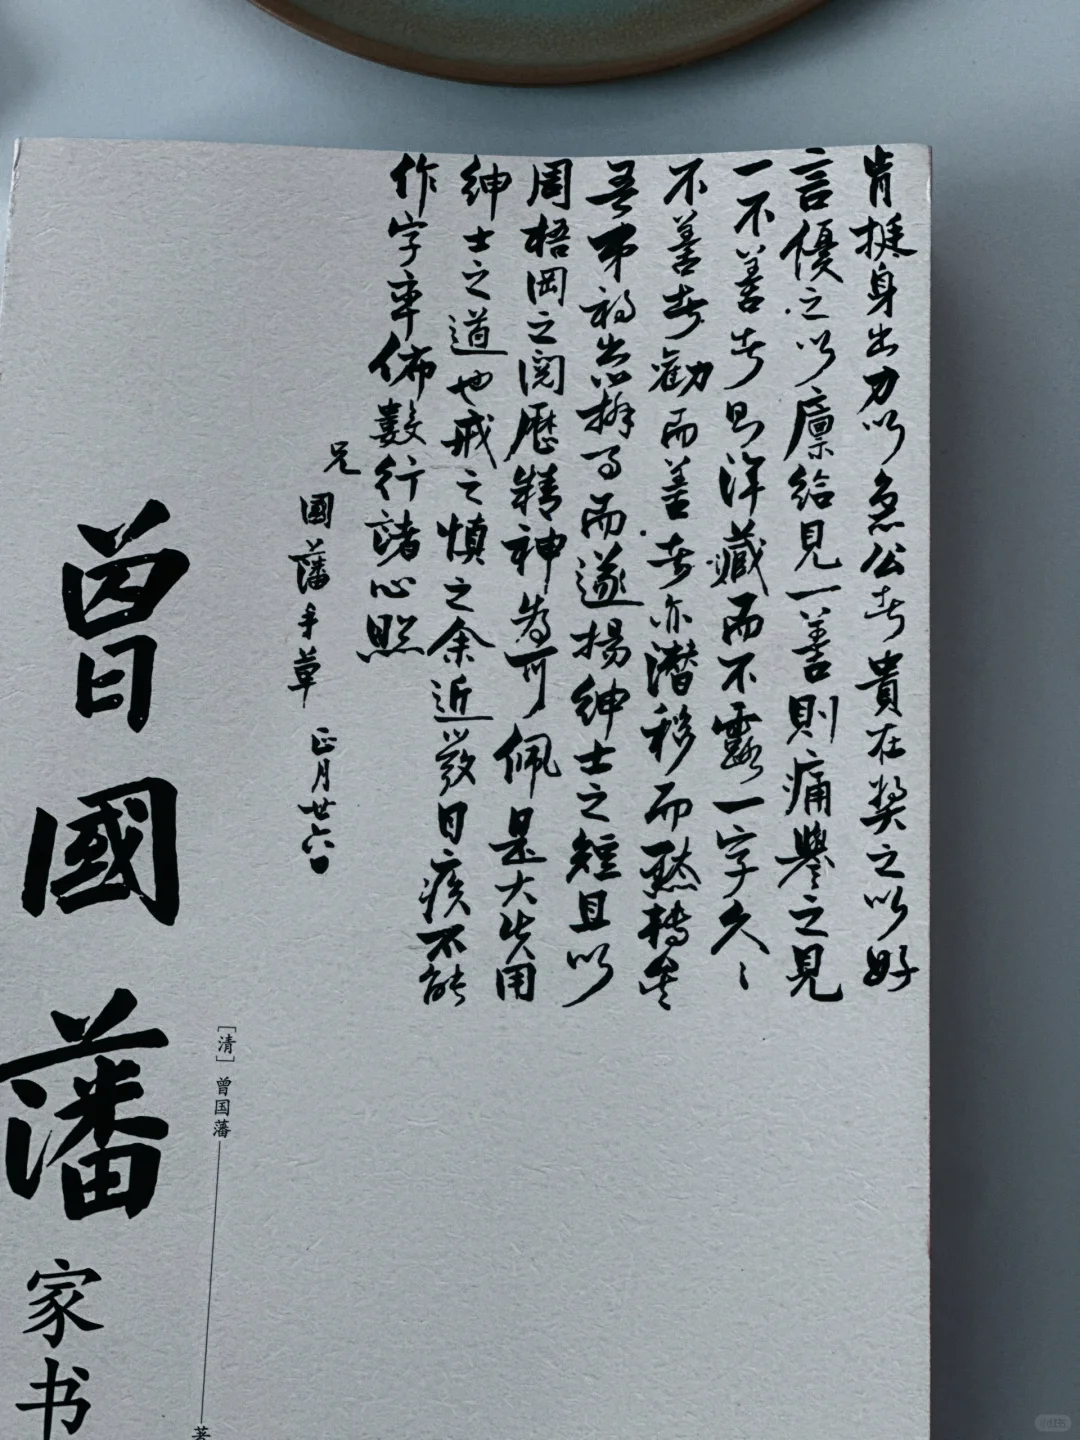 肯挺身出力以急公者貴在奬之以好
言優之以廩給見一善則痛譽之見
一不善者則渾藏而不露一字久〻
不善者勸而善者亦潛移而默轉矣
吾弟初出辦事而遂揚紳士之短且以
周梧岡之閱歷精神為可佩是大失用
紳士之道也戒之慎之余近發目疾不能
作字率佈數行諸心照
兄
國藩手草 正月廿六日
曾國藩
家书
[清] 曾国藩 著